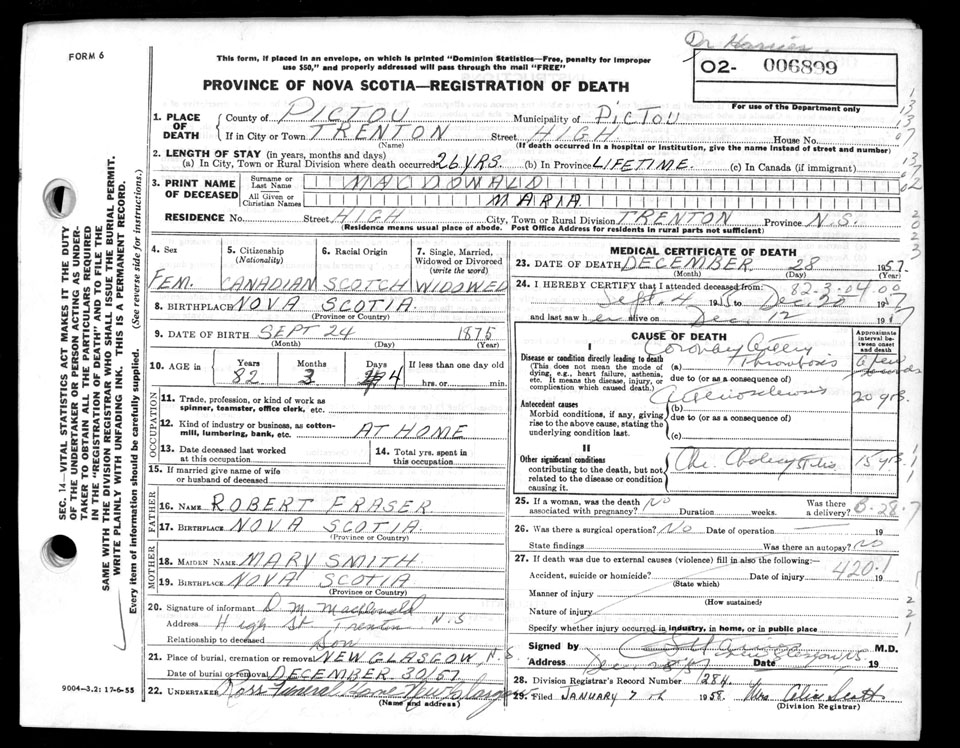 FORM 6
Dr Harries
This form, if placed in an envelope, on which is printed "Dominion Statistics—Free, penalty for improper
use $50," and properly addressed will pass through the mail "FREE"
02- 006899
For use of the Department only
PROVINCE OF NOVA SCOTIA—REGISTRATION OF DEATH
1. PLACE OF DEATH
County of PICTOU Municipality of PICTOU
If in City or Town TRENTON Street HIGH House No.
(Name) (If death occurred in a hospital or institution, give the name instead of street and number)
2. LENGTH OF STAY (in years, months and days)
(a) In City, Town or Rural Division where death occurred 26 YRS. (b) In Province LIFETIME. (c) In Canada (if immigrant)
3. PRINT NAME OF DECEASED
Surname or Last Name MACDONALD
All Given or Christian Names MARIA
RESIDENCE No. Street HIGH City, Town or Rural Division TRENTON Province N.S.
(Residence means usual place of abode. Post Office Address for residents in rural parts not sufficient)
4. Sex FEM.
5. Citizenship (Nationality) CANADIAN
6. Racial Origin SCOTCH
7. Single, Married, Widowed or Divorced (write the word) WIDOWED
8. BIRTHPLACE NOVA SCOTIA
(Province or Country)
9. DATE OF BIRTH SEPT 24 1875
(Month) (Day) (Year)
10. AGE in Years 82 Months 3 Days 4 If less than one day
hrs. or min.
OCCUPATION
11. Trade, profession, or kind of work as
spinner, teamster, office clerk, etc.
12. Kind of industry or business, as cotton-
mill, lumbering, bank, etc. AT HOME
13. Date deceased last worked
at this occupation
14. Total yrs. spent in
this occupation
15. If married give name of wife
or husband of deceased
FATHER
16. NAME ROBERT FRASER
17. BIRTHPLACE NOVA SCOTIA.
(Province or Country)
MOTHER
18. MAIDEN NAME MARY SMITH
19. BIRTHPLACE NOVA SCOTIA
(Province or Country)
20. Signature of informant D. M. MacDonald
Address High St. Trenton N.S
Relationship to deceased Son
21. Place of burial, cremation or removal NEW GLASGOW, N.S.
Date of burial or removal DECEMBER 30/57
22. UNDERTAKER Ross Funeral Home New Glasgow
(Name and address)
MEDICAL CERTIFICATE OF DEATH
23. DATE OF DEATH DECEMBER 28 1957.
(Month) (Day) (Year)
24. I HEREBY CERTIFY that I attended deceased from: 82-3-04.00
Sept. 4 19 to Dec. 25 1957
and last saw her alive on Dec. 12 19
CAUSE OF DEATH
Approximate interval between onset and death
I
Disease or condition directly leading to death
(This does not mean the mode of dying, e.g., heart failure, asthenia, etc. It means the disease, injury, or complication which caused death.)
(a) Coronary Artery Thrombosis
due to (or as a consequence of)
Antecedent causes
Morbid conditions, if any, giving rise to the above cause, stating the underlying condition last.
(b) 20 yrs.
due to (or as a consequence of)
(c)
II
Other significant conditions
contributing to the death, but not related to the disease or condition causing it.
Chr. Cholecystitis 15 yrs.
25. If a woman, was the death
associated with pregnancy? No Duration weeks. Was there
a delivery?
26. Was there a surgical operation? No Date of operation 19
State findings Was there an autopsy? No
27. If death was due to external causes (violence) fill in also the following:
420.1
Accident, suicide or homicide? Date of injury 19
(State which)
Manner of injury
(How sustained)
Nature of injury
Specify whether injury occurred in industry, in home, or in public place
Signed by M.D.
Address Date Dec. 28/57 19
28. Division Registrar's Record Number 284
29. Filed JANUARY 7th 1958. Mrs Alice Scott
(Division Registrar)
SEC. 14—VITAL STATISTICS ACT MAKES IT THE DUTY
OF THE UNDERTAKER OR PERSON ACTING AS UNDER-
TAKER TO OBTAIN ALL THE PARTICULARS REQUIRED
IN THE "REGISTRATION OF DEATH" AND TO FILE THE
SAME WITH THE DIVISION REGISTRAR WHO SHALL ISSUE THE BURIAL PERMIT.
WRITE PLAINLY WITH UNFADING INK. THIS IS A PERMANENT RECORD.
Every item of information should be carefully supplied. (See reverse side for instructions.)
9004—3.2: 17-6-55